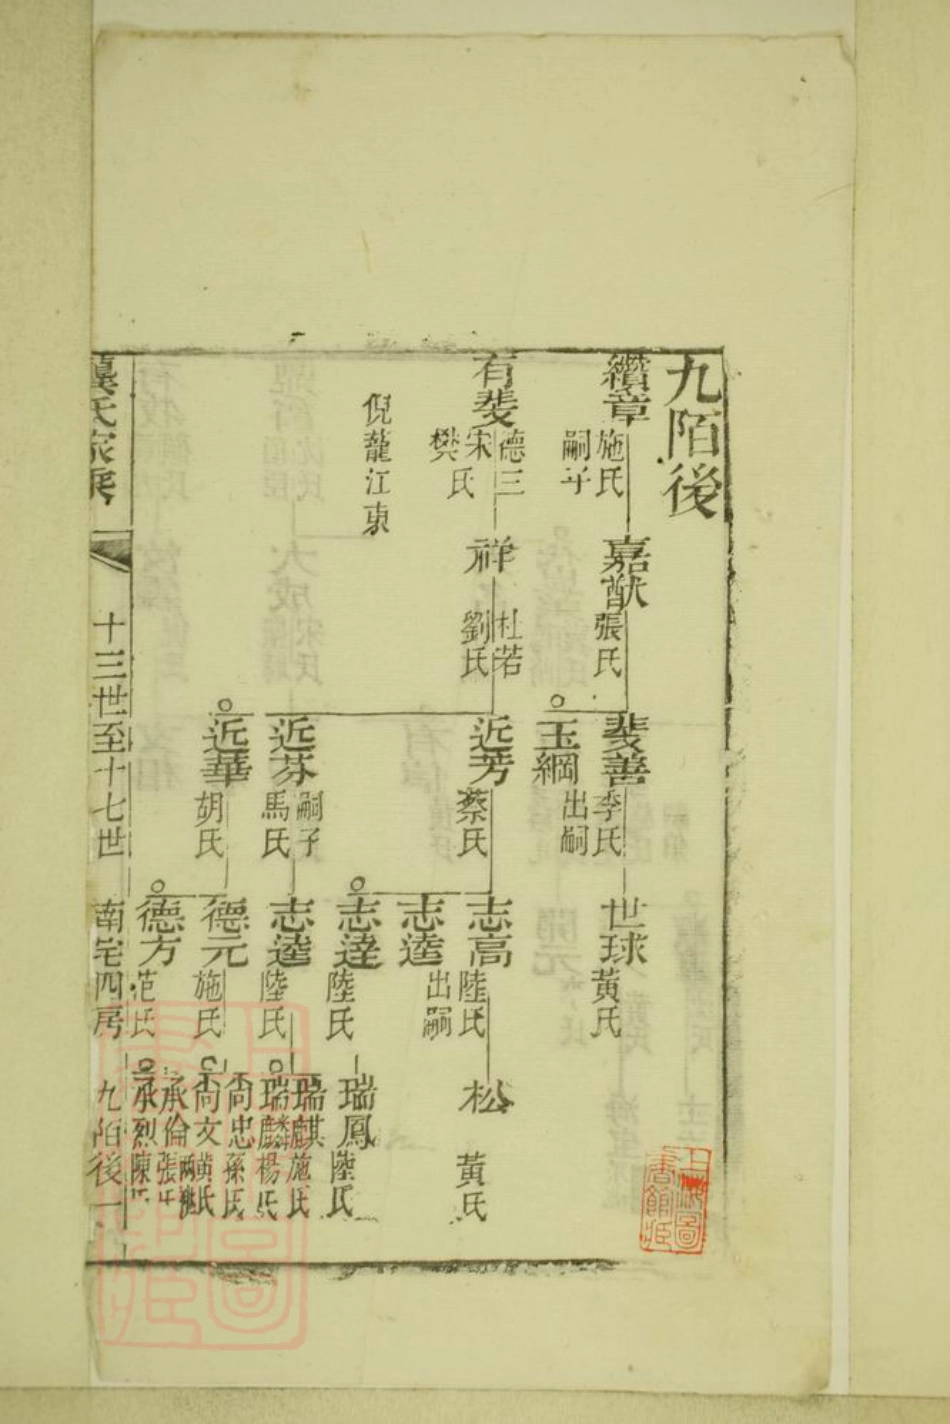 九陌後
纘章 施氏 嗣子
嘉猷 張氏
斐善 李氏
世球 黃氏
玉綱 出嗣
有斐 德三 宋氏 樊
祥 杜若 劉氏
近芳 蔡氏
志高 陸氏
松 黃氏
志逵 出嗣
倪蘢江東
志達 陸氏
瑞鳳 陸氏
近芬 嗣子 馬氏
志逵 陸氏
瑞麒 施氏
瑞麟 楊氏
近華 胡氏
德元 施氏
尚忠 孫氏
尚文 黃氏
德方 范氏
承倫 張氏
承烈 陳氏
龔氏家乘 十三世至十七世 南宅四房 九陌後一
上海圖書館藏